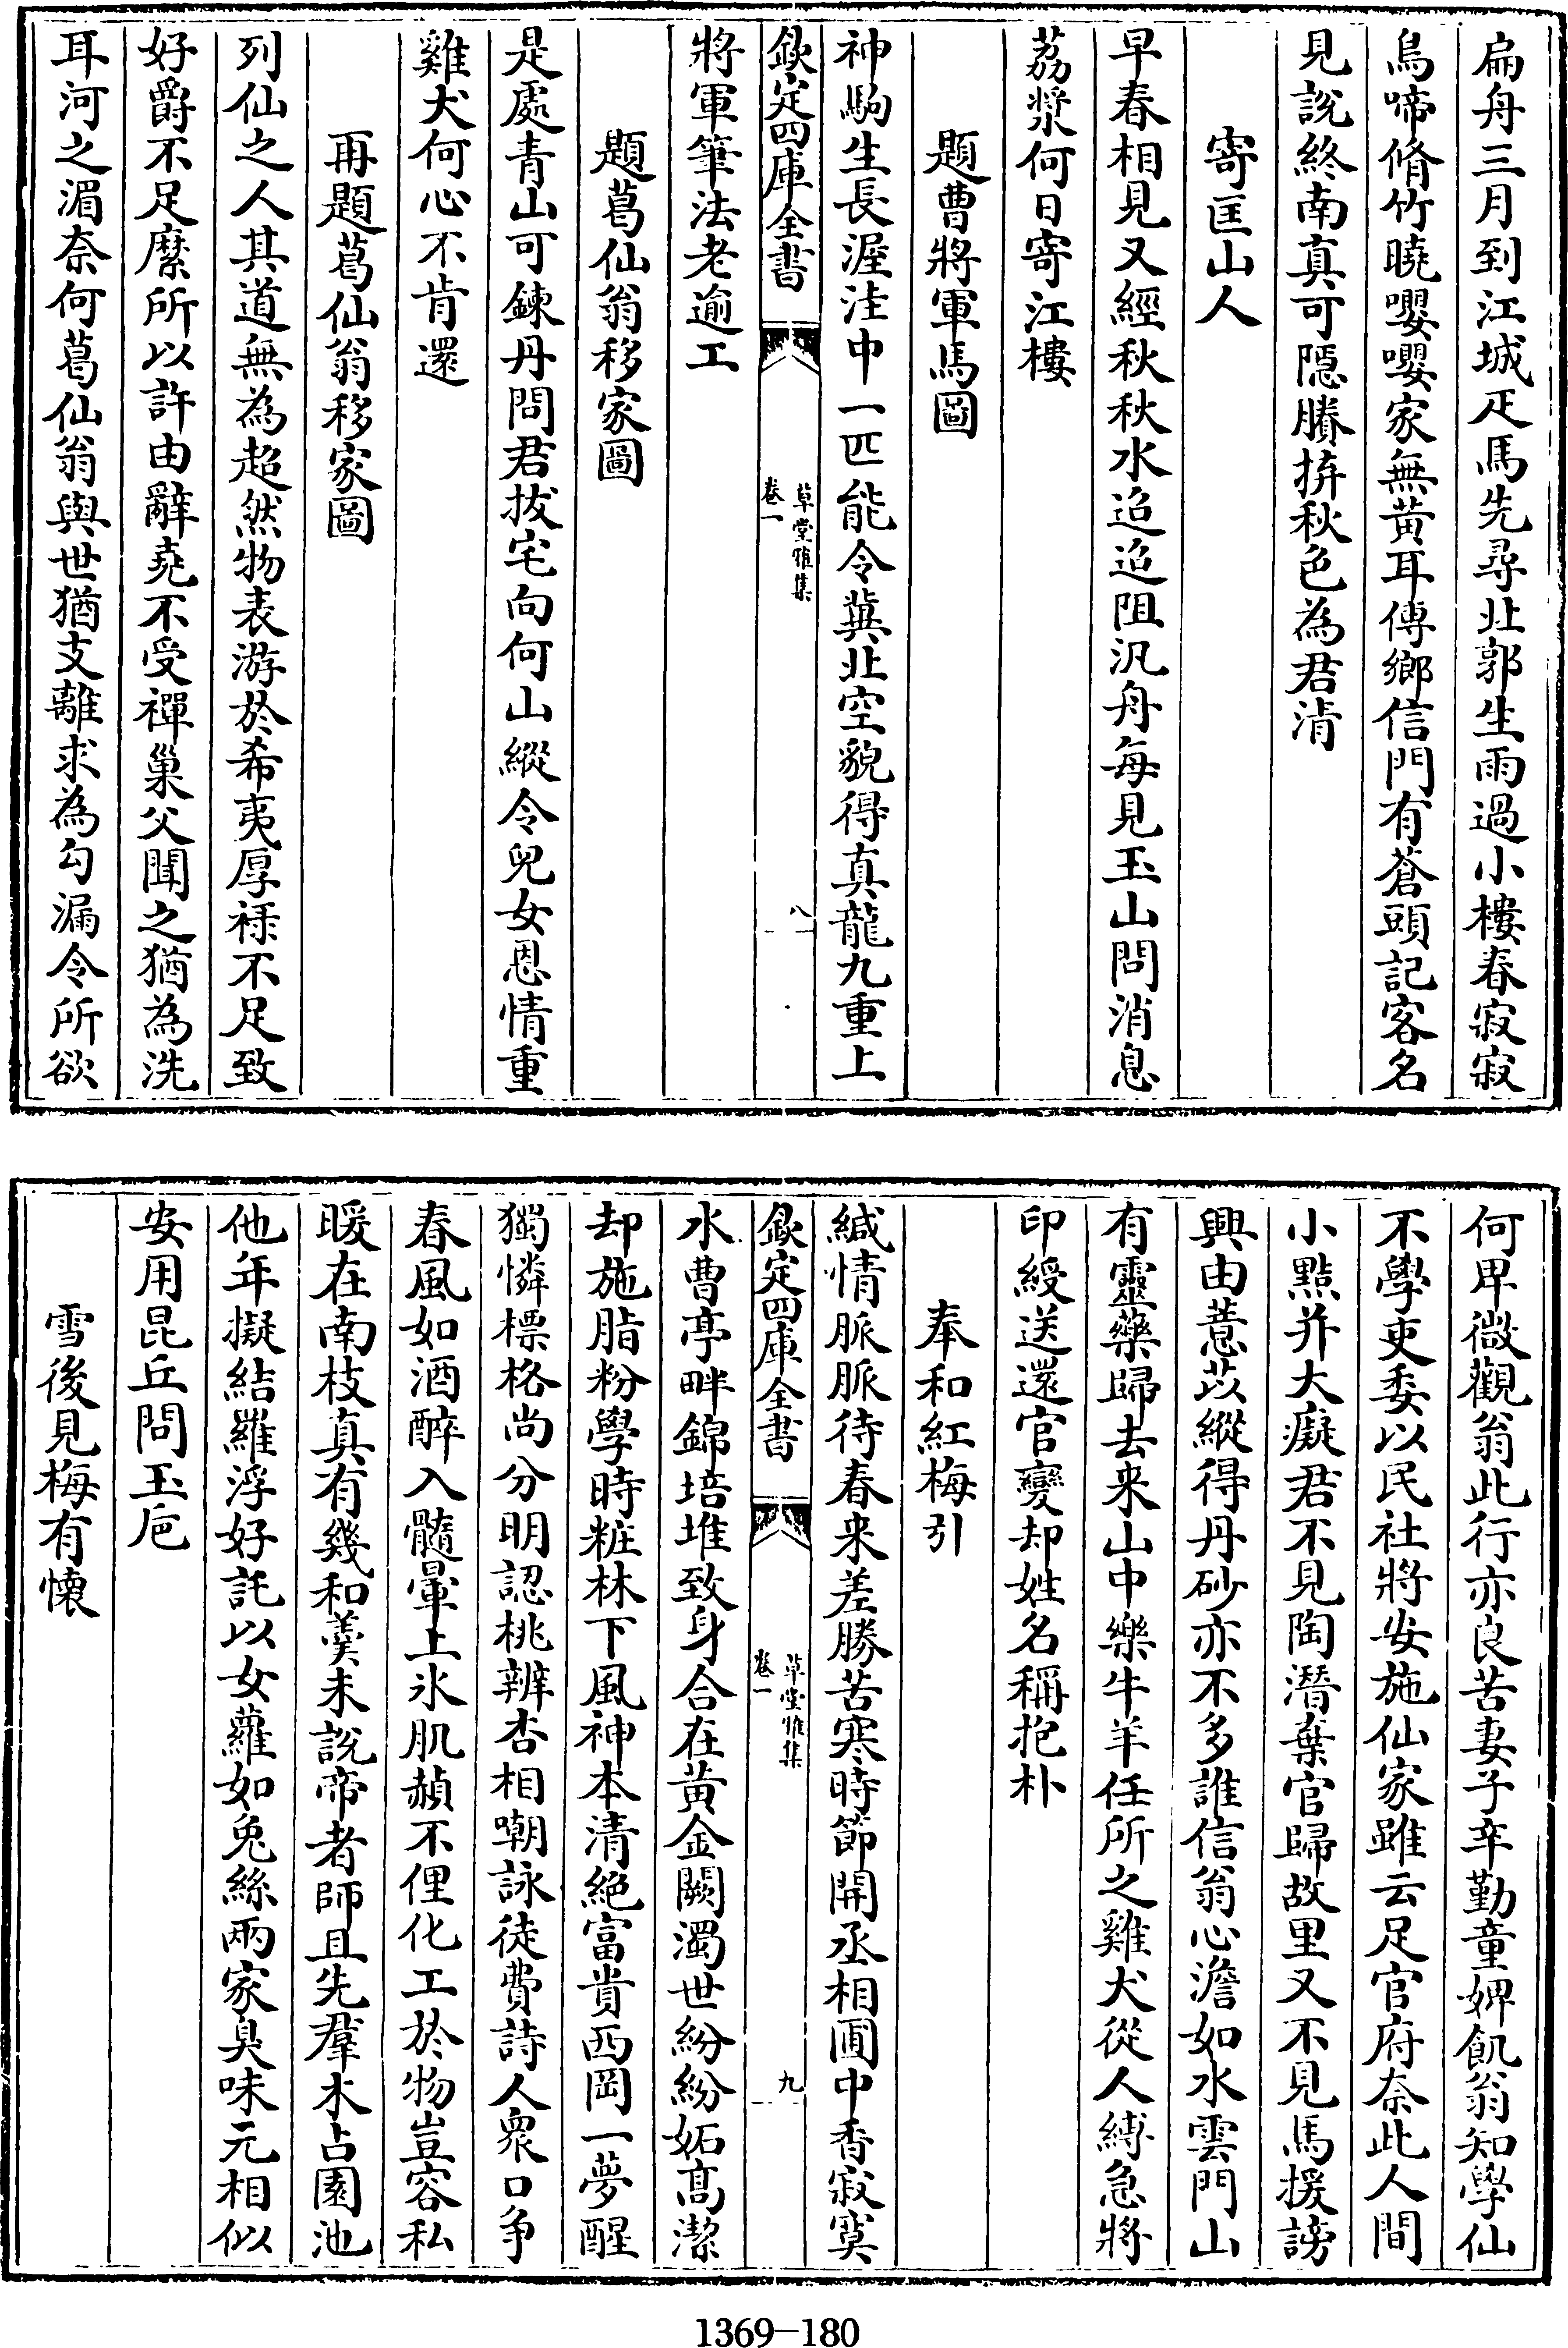 扁舟三月到江城疋馬先尋北郭生雨過小樓春寂寂
烏啼脩竹曉嚶嚶家無黃耳傳鄉信門有蒼頭記客名
見說終南真可隱賸拚秋色為君清
寄匡山人
早春相見又經秋秋水迢迢阻汎舟每見玉山問消息
荔漿何日寄江樓
題曹將軍馬圖
神駒生長渥洼中一匹能令冀北空貌得真龍九重上
欽定四庫全書
草堂雅集
卷一
八
將軍筆法老逾工
題葛仙翁移家圖
是處青山可鍊丹問君拔宅向何山縱令兒女恩情重
雞犬何心不肯還
再題葛仙翁移家圖
列仙之人其道無為超然物表游於希夷厚祿不足致
好爵不足縻所以許由辭堯不受禪巢父聞之猶為洗
耳河之湄奈何葛仙翁與世猶支離求為勾漏令所欲
何卑微觀翁此行亦良苦妻子辛勤童婢飢翁知學仙
不學吏委以民社將安施仙家雖云足官府奈此人間
小點并大癡君不見陶潛棄官歸故里又不見馬援謗
興由薏苡縱得丹砂亦不多誰信翁心澹如水雲門山
有靈藥歸去来山中樂牛羊任所之雞犬從人縛急將
印綬送還官變却姓名稱抱朴
奉和紅梅引
緘情脈脈待春来差勝苦寒時節開丞相圃中香寂寞
欽定四庫全書
草堂雅集
卷一
九
水曹亭畔錦培堆致身合在黃金闕濁世紛紛妬高潔
却施脂粉學時粧林下風神本清絕富貴西岡一夢醒
獨憐標格尚分明認桃辨杏相嘲詠徒費詩人衆口争
春風如酒醉入髓暈上氷肌頳不俚化工於物豈容私
暖在南枝真有幾和羮未說帝者師且先羣木占園池
他年擬結羅浮好託以女蘿如兔絲兩家臭味元相似
安用昆丘問玉巵
雪後見梅有懷
1369—180